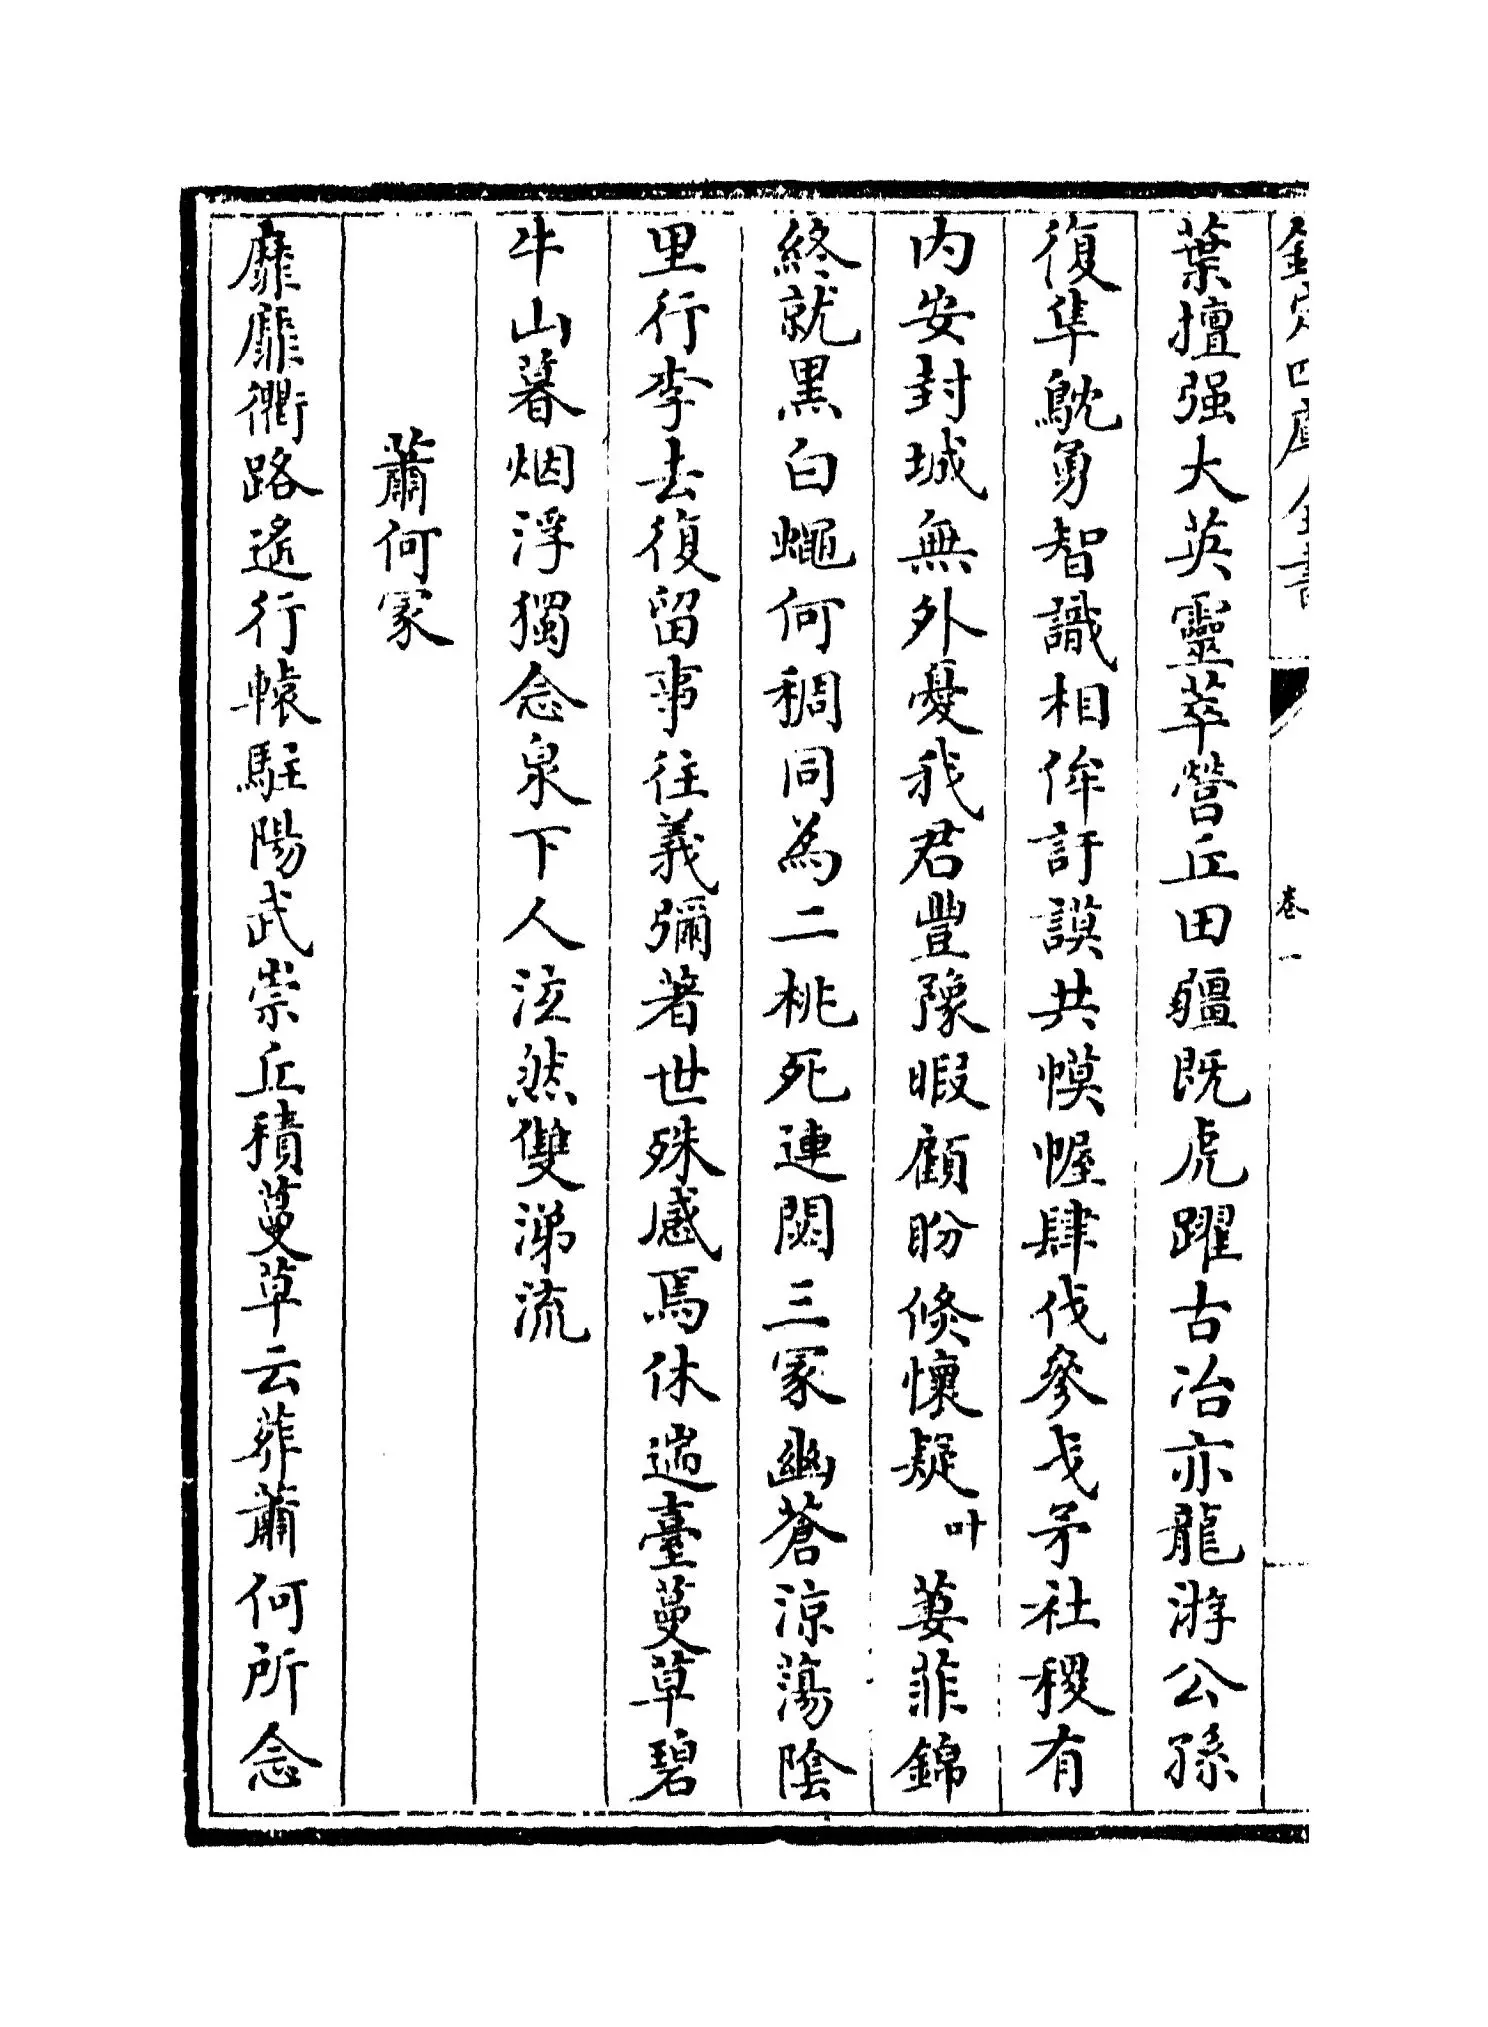 欽定四庫全書
卷一
葉擅强大英靈萃營丘田疆既虎躍古冶亦龍游公孫
復隼鷙勇智識相侔訏謨共幙幄肆伐參戈矛社稷有
内安封域無外憂我君豐豫暇顧盼倐懷疑叶萋菲錦
終就黒白蠅何稠同為二桃死連閟三冢幽蒼涼蕩陰
里行李去復留事往義彌著世殊感焉休遄臺蔓草碧
牛山暮烟浮獨念泉下人泫然雙涕流
蕭何冢
靡靡衢路遙行轅駐陽武崇丘積蔓草云葬蕭何所念